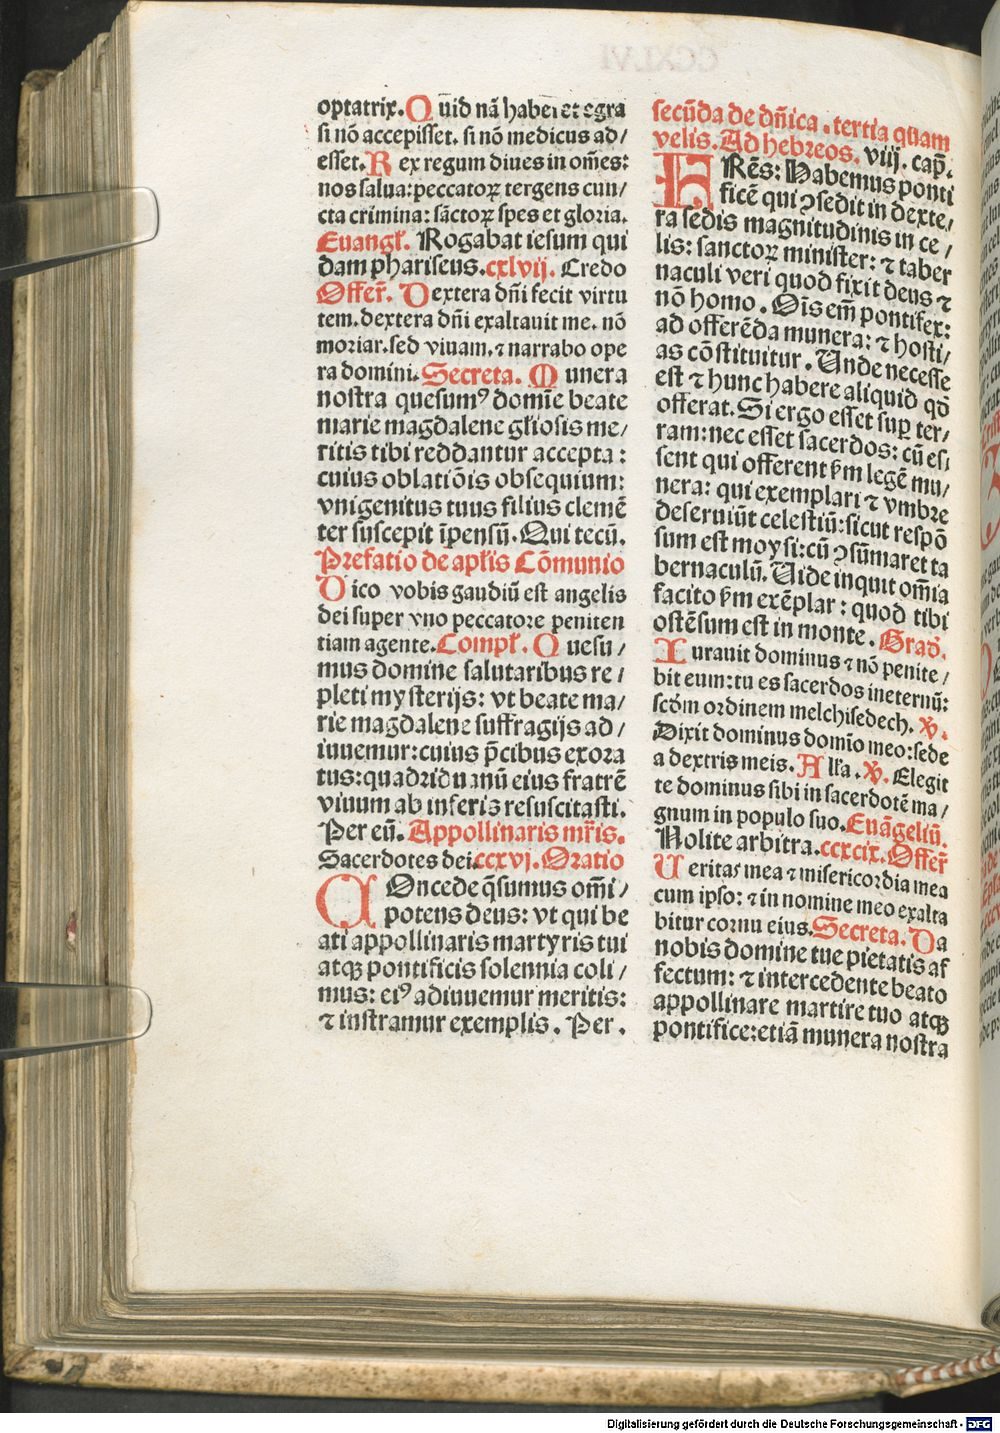 optatrix. Quid nã haberet egra
si nõ accepisset. si nõ medicus ad/
esset. Rex regum diues in om̃es:
nos salua: peccatoꝝ tergens cun/
cta crimina: sãctoꝝ spes et gloria.
Euangl̃. Rogabat iesum qui
dam phariseus. cxlvij. Credo
Offer̃. Dextera dñi fecit virtu
tem. dextera dñi exaltauit me. nõ
moriar. sed viuam. ⁊ narrabo ope
ra domini. Secreta. Munera
nostra quesumꝰ domĩe beate
marie magdalene gl̃iosis me/
ritis tibi reddantur accepta:
cuius oblatiõis obsequium:
vnigenitus tuus filius clemẽ
ter suscepit ĩpensũ. Qui tecũ.
Prefatio de apl̃is Cõmunio
Dico vobis gaudiũ est angelis
dei super vno peccatore peniten
tiam agente. Compl̃. Quesu/
mus domine salutaribus re/
pleti mysterijs: vt beate ma/
rie magdalene suffragijs ad/
iuuemur: cuius p̃cibus exora
tus: quadriduanũ eius fratrẽ
viuum ab inferis resuscitasti.
Per eũ. Appollinaris mr̃is.
Sacerdotes dei. ccxvj. Oratio
COncede q̃sumus om̃i/
potens deus: vt qui be
ati appollinaris martyris tui
atqꝫ pontificis solennia coli/
mus: eiꝰ adiuuemur meritis:
⁊ instramur exemplis. Per.
secũda de dñica. tertia quam
velis. Ad hebreos. viij. cap̃.
FRẽs: Habemus ponti
ficẽ qui ꝯsedit in dexte/
ra sedis magnitudinis in ce/
lis: sanctoꝝ minister: ⁊ taber
naculi veri quod fixit deus ⁊
nõ homo. Oĩs em̃ pontifex:
ad offerẽda munera: ⁊ hosti/
as cõstituitur. Unde necesse
est ⁊ hunc habere aliquid qđ
offerat. Si ergo esset suꝑ ter/
ram: nec esset sacerdos: cũ es/
sent qui offerent ẜm legẽ mu/
nera: qui exemplari ⁊ vmbre
deseruiũt celestiũ: sicut respõ
sum est moysi: cũ ꝯsũmaret ta
bernaculũ. Uide inquit om̃ia
facito ẜm exẽplar: quod tibi
ostẽsum est in monte. Grad̃.
Iurauit dominus ⁊ nõ penite/
bit eum: tu es sacerdos in eternũ:
scðm ordinem melchisedech. ℣.
Dixit dominus domĩo meo: sede
a dextris meis. All̃a. ℣. Elegit
te dominus sibi in sacerdotẽ ma/
gnum in populo suo. Euãgeliũ.
Nolite arbitra. ccxcix. Offer̃
Ueritas mea ⁊ misericordia mea
cum ipso: ⁊ in nomine meo exalta
bitur cornu eius. Secreta. Da
nobis domine tue pietatis af
fectum: ⁊ intercedente beato
appollinare martire tuo atqꝫ
pontifice: etiã munera nostra
Digitalisierung gefördert durch die Deutsche Forschungsgemeinschaft - DFG